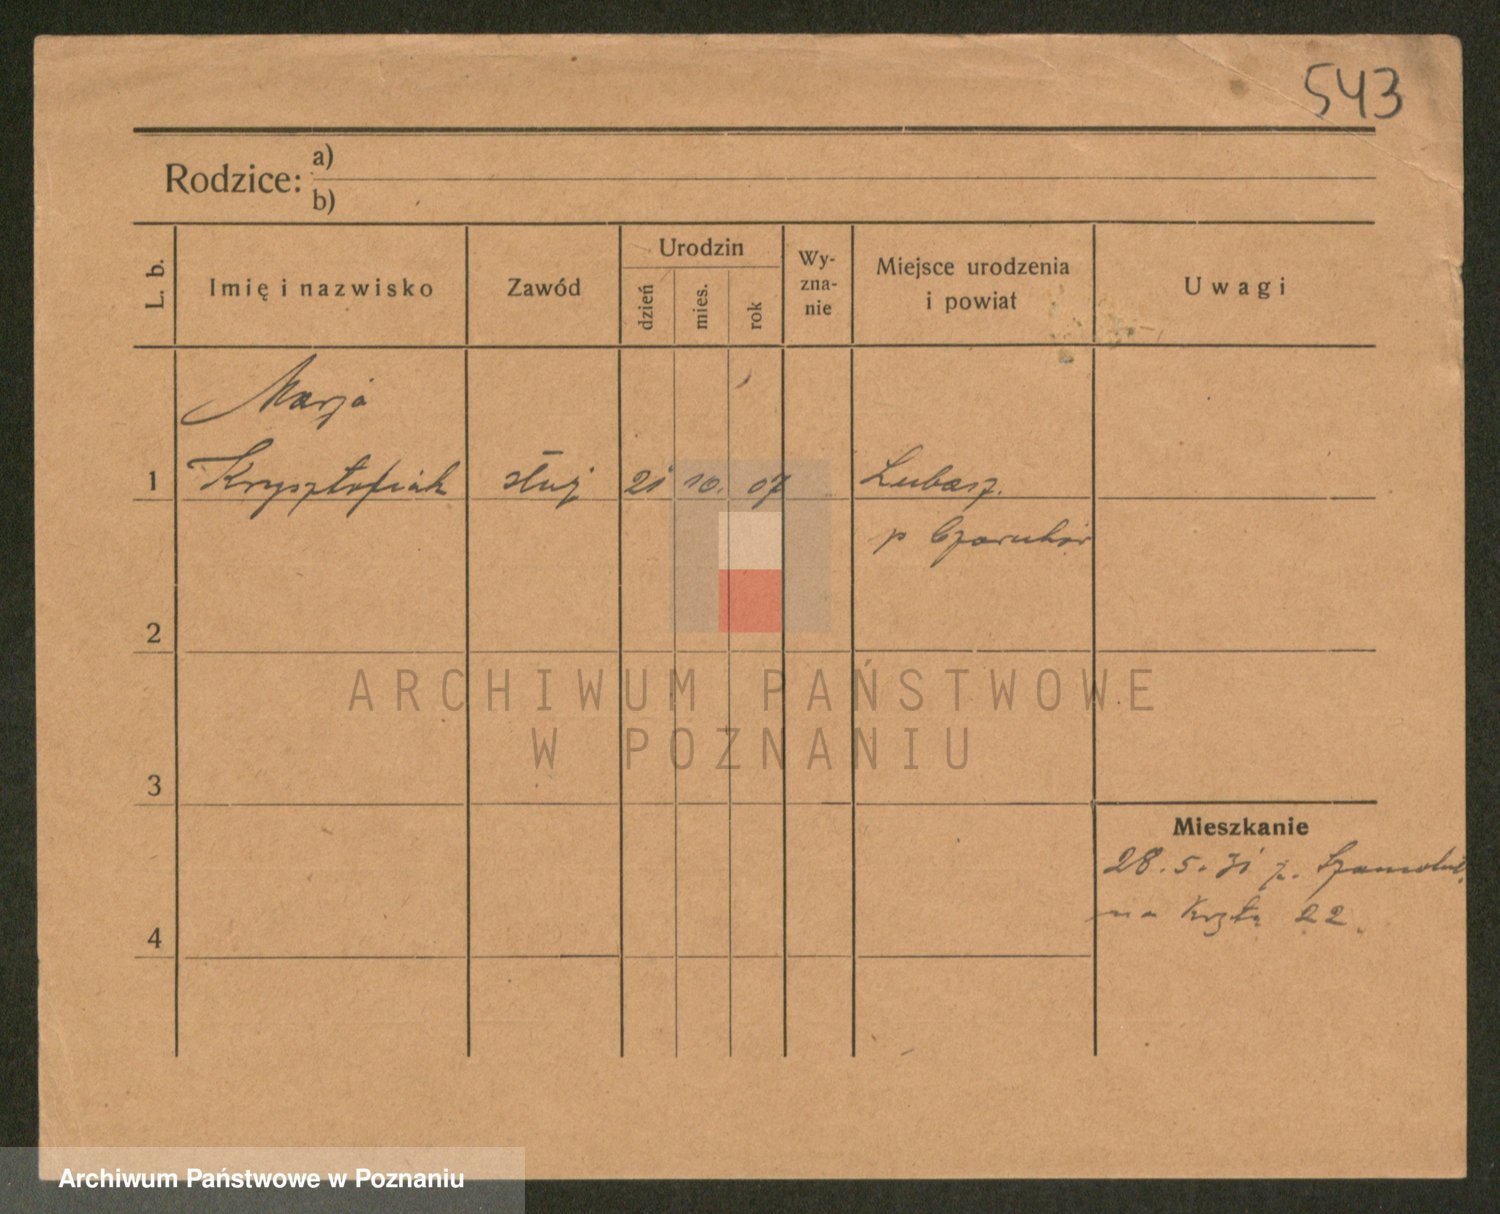 543
Rodzice: a)
b)
L. b.
Imię i nazwisko
Zawód
Urodzin
dzień
mies.
rok
Wy-
zna-
nie
Miejsce urodzenia
i powiat
Uwagi
Marja
1 Krysztofiak służ 21 10. 07 Lubasz.
p Czarnków
2
ARCHIWUM PAŃSTWOWE
W POZNANIU
3
Mieszkanie
28. 5. 31 z.
na 22.
4
Archiwum Państwowe w Poznaniu